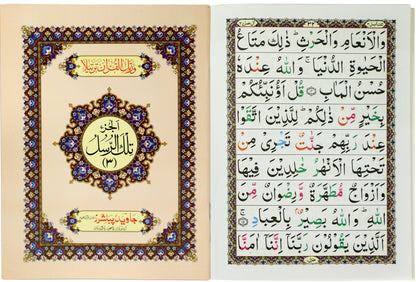 وَالْاَنْعَامِ وَالْحَرْثِ ؕ ذٰلِكَ مَتَاعُ
الْحَيٰوةِ الدُّنْيَا ۚ وَاللّٰهُ عِنْدَهٗ
حُسْنُ الْمَاٰبِ قُلْ اَؤُنَبِّئُكُمْ
بِخَيْرٍ مِّنْ ذٰلِكُمْ ؕ لِلَّذِيْنَ اتَّقَوْا
عِنْدَ رَبِّهِمْ جَنّٰتٌ تَجْرِىْ مِنْ
تَحْتِهَا الْاَنْهٰرُ خٰلِدِيْنَ فِيْهَا
وَاَزْوَاجٌ مُّطَهَّرَةٌ وَّرِضْوَانٌ مِّنَ
اللّٰهِ ؕ وَاللّٰهُ بَصِيْرٌۢ بِالْعِبَادِ
اَلَّذِيْنَ يَقُوْلُوْنَ رَبَّنَاۤ اِنَّنَاۤ اٰمَنَّا
ورتل القرآن ترتيلا
الجزء
تلك الرسل
(٣)